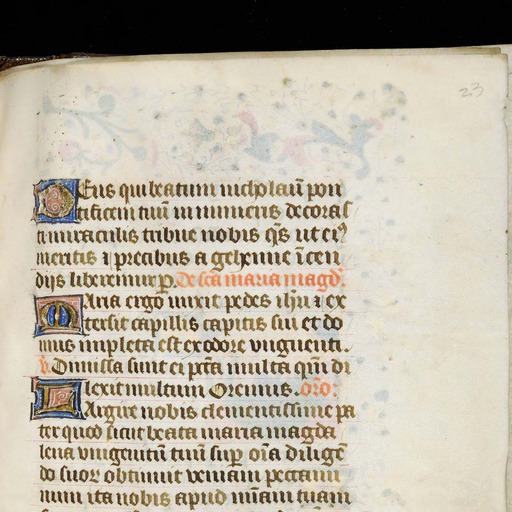 23
Deus qui beatum nicholaū pon
tificem tuū innumeris decoras
ti miraculis tribue nobis q̄s ut eiꝰ
meritis ⁊ precibus a gehenne īcen
diis liberemur p. De sc̄a maria magd̄.
Maria ergo unxit pedes ih̄u ⁊ ex
tersit capillis capitis sui et do
mus impleta est ex odore unguenti.
v̄. Dimissa sunt ei pc̄ta multa qm̄ di
lexit multum Oremus. or̄o.
Largire nobis clementissime pa
ter quod sicut beata maria magda
lena unigenitū tuū sup̄ oīa diligē
do suor̄ obtinuit veniam peccami
num ita nobis apud mīam tuam